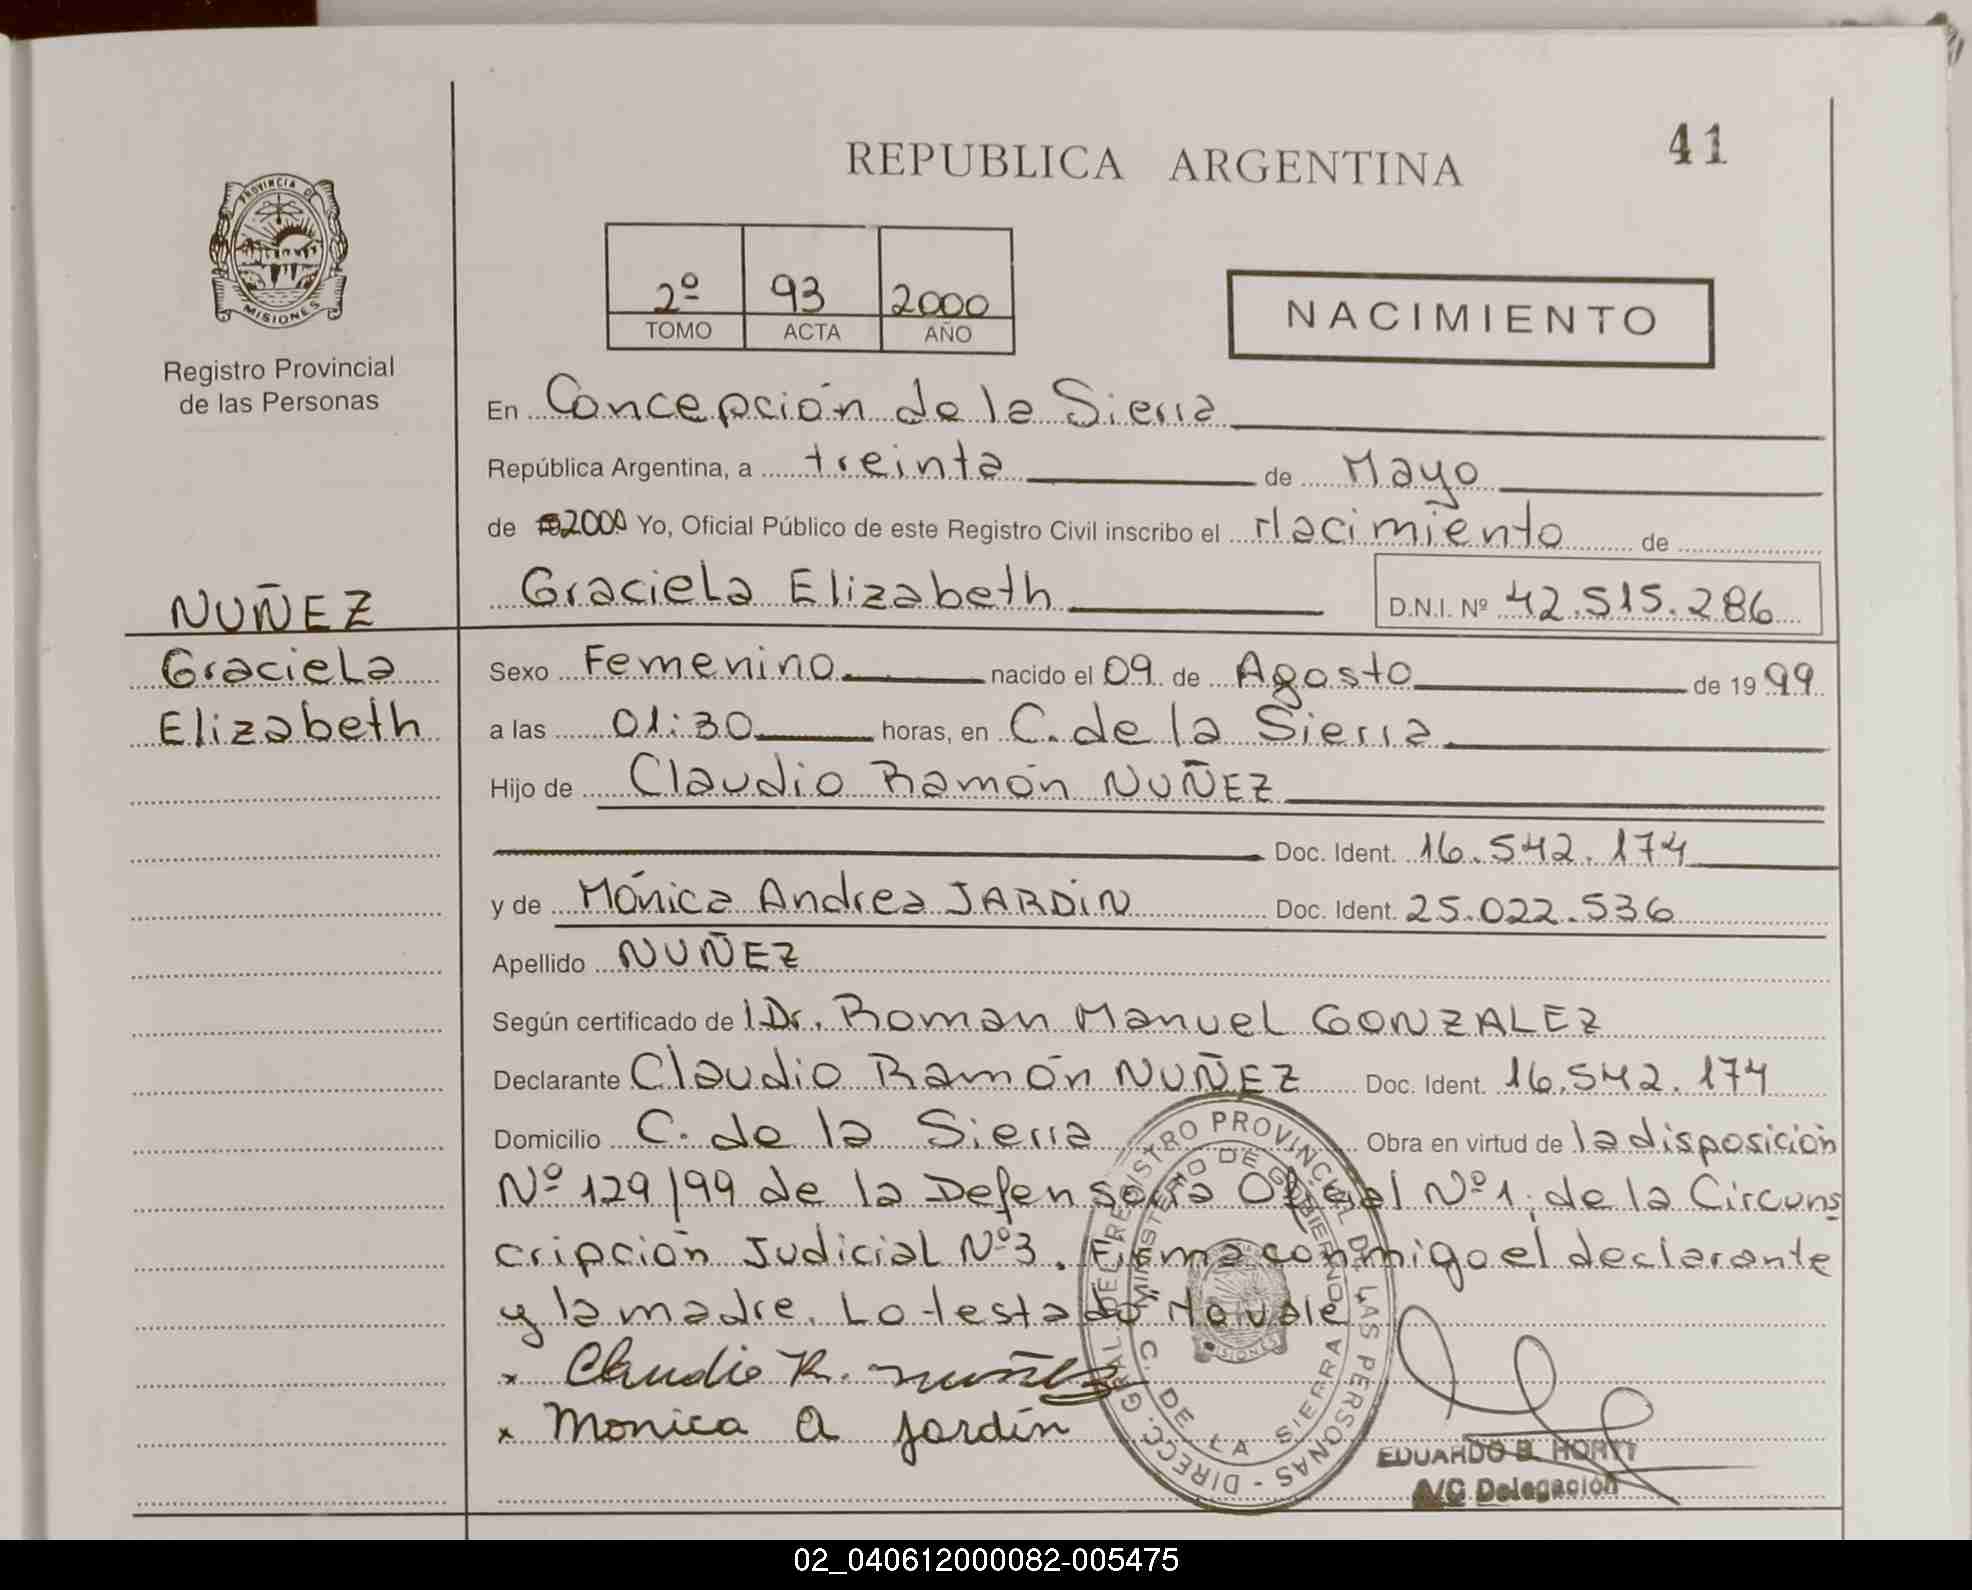 41
REPUBLICA ARGENTINA
PROVINCIA DE
MISIONES
Registro Provincial
de las Personas
2º 93 2000
TOMO ACTA AÑO
NACIMIENTO
En Concepción de la Sierra
República Argentina, a treinta de Mayo
de 2000 Yo, Oficial Público de este Registro Civil inscribo el Nacimiento de
Graciela Elizabeth D.N.I. Nº 42.515.286
NUÑEZ
Graciela
Elizabeth
Sexo Femenino nacido el 09 de Agosto de 1999
a las 01:30 horas, en C. de la Sierra
Hijo de Claudio Ramón NUÑEZ
Doc. Ident. 16.542.174
y de Mónica Andrea JARDIN Doc. Ident. 25.022.536
Apellido NUÑEZ
Según certificado de Dr. Roman Manuel GONZALEZ
Declarante Claudio Ramón NUÑEZ Doc. Ident. 16.542.174
Domicilio C. de la Sierra Obra en virtud de la disposición
Nº 129/99 de la Defensoria Oficial Nº 1. de la Circuns
cripción Judicial Nº 3. Firma conmigo el declarante
y la madre. Lo testado "No vale
x Claudio R. nuñez
x Monica A jardín
DIRECC. GRAL. DEL REGISTRO PROVINCIAL DE LAS PERSONAS -
MINISTERIO DE GOBIERNO
C. DE LA SIERRA
MISIONES
EDUARDO B. HORTT
A/C Delegación
02_040612000082-005475